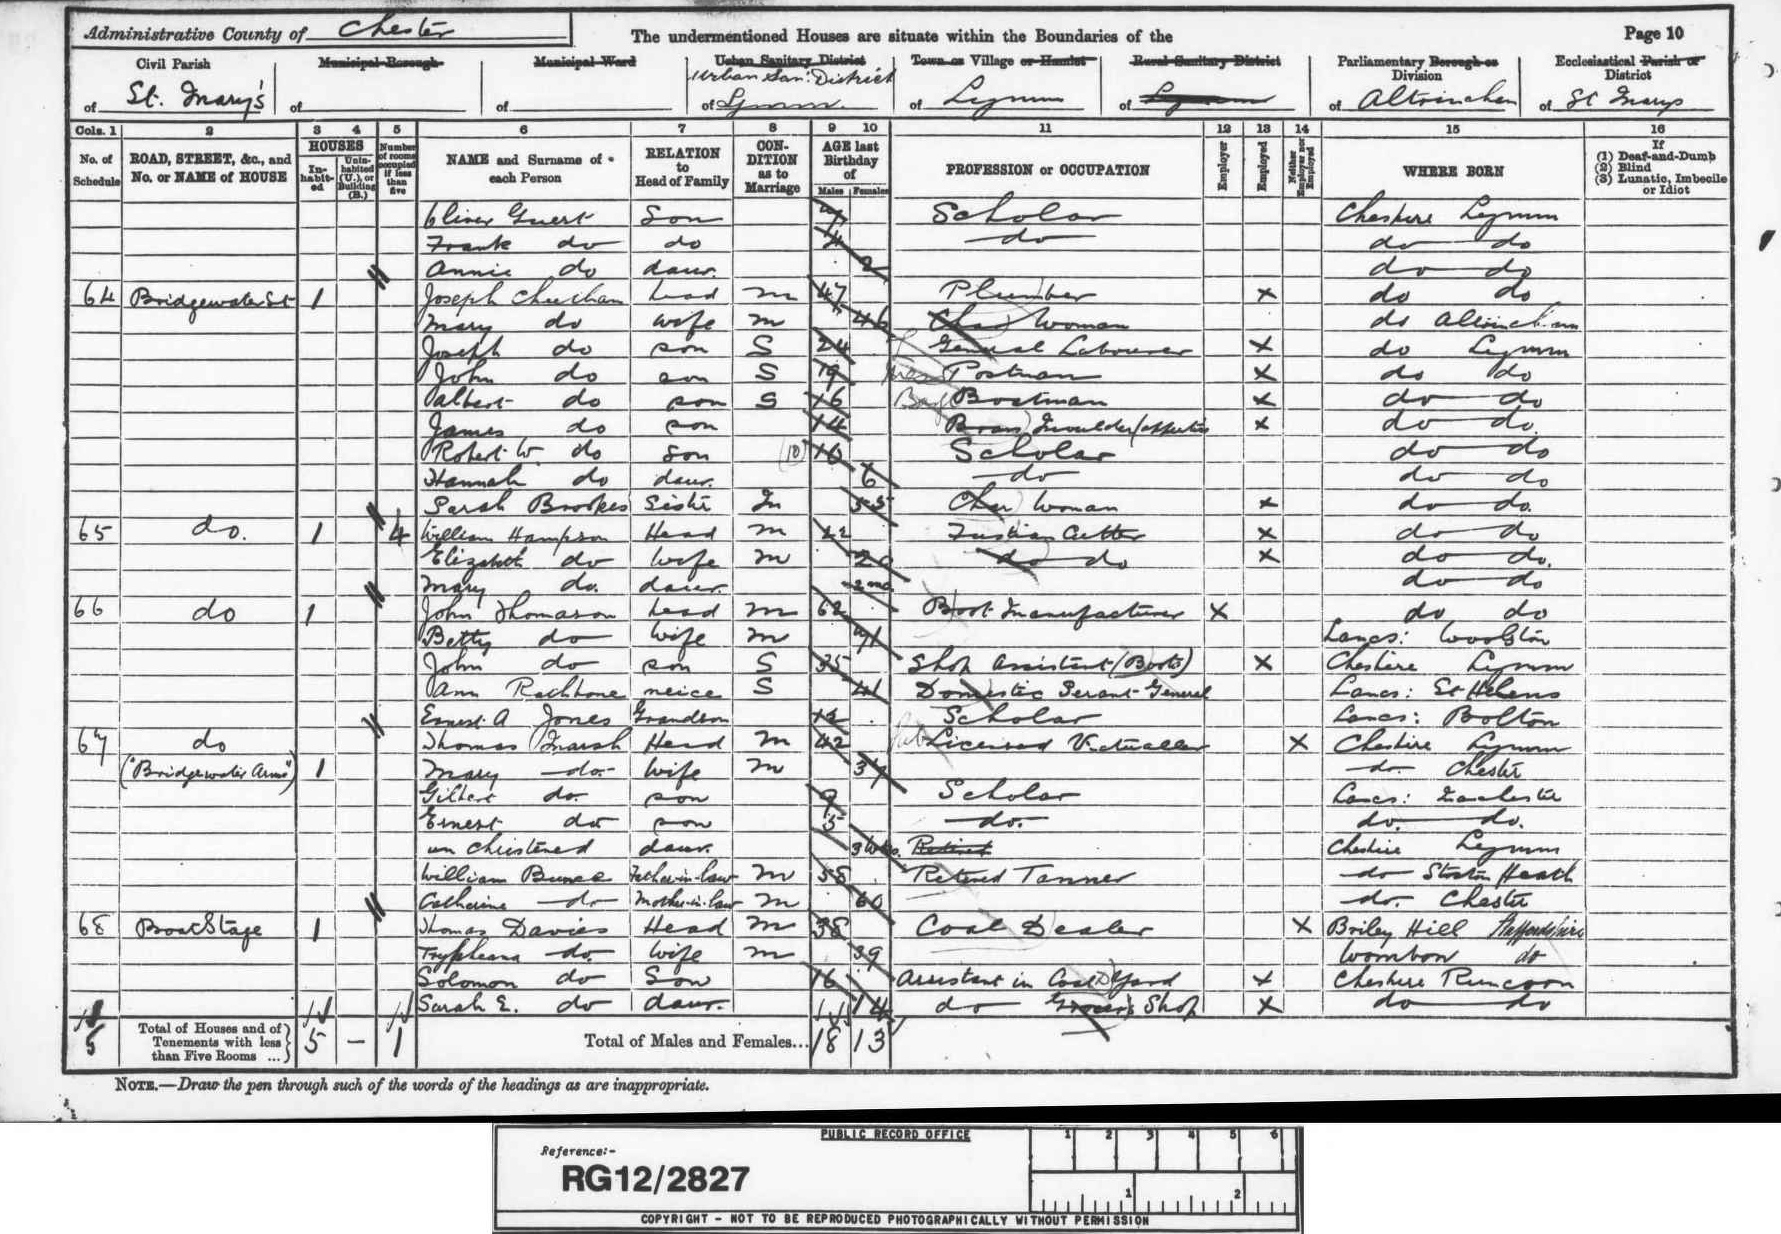 Administrative County of Chester
The undermentioned Houses are situate within the Boundaries of the
Page 10
Civil Parish of St. Mary's
Municipal Borough of
Municipal Ward of
Urban Sanitary District Urban San: District of Lymm
Town or Village or Hamlet of Lymm
Rural Sanitary District of Lymm
Parliamentary Borough or Division of Altrincham
Ecclesiastical Parish or District of St Marys
Cols. 1 2 3 4 5 6 7 8 9 10 11 12 13 14 15 16
No. of Schedule
ROAD, STREET, &c., and No. or NAME of HOUSE
HOUSES
Inhabited
Uninhabited (U.), or Building (B.)
Number of rooms occupied if less than five
NAME and Surname of each Person
RELATION to Head of Family
CONDITION as to Marriage
AGE last Birthday of
Males Females
PROFESSION or OCCUPATION
Employer
Employed
Neither Employer nor Employed
WHERE BORN
If (1) Deaf-and-Dumb (2) Blind (3) Lunatic, Imbecile or Idiot
Oliver Son Scholar Cheshire Lymm
Frank do do do do do
Annie do daur. 2 do do
64 Bridgewater St 1 Joseph Cheetham head m 47 Plumber x do do
Mary do wife m 46 Char Woman do Altrincham
Joseph do son S 24 General Labourer x do Lymm
John do son S 19 Postman x do do
Albert do son S 16 Boatman x do do
James do son 14 Brass Moulder x do do.
Robert W. do Son (10) 10 Scholar do do
Hannah do daur. 6 do do do
Sarah Brookes Sister 55 Char Woman x do do.
65 do. 1 4 William Hampson Head m 22 Fustian Cutter x do do
Elizabeth do wife m 20 do do x do do.
Mary do. daur. 2 mo do do
66 do 1 John Thomason head m 62 Boot Manufacturer x do do
Betty do wife m 71 Lancs: Woolston
John do son S 35 Shop Assistant (Boots) x Cheshire Lymm
Ann Rathbone neice S 41 Domestic Servant General Lancs: St Helens
Ernest A Jones Grandson 12 Scholar Lancs: Bolton
67 do Thomas Marsh Head m 42 Licensed Victualler x Cheshire Lymm
("Bridgewater Arms") 1 Mary do. wife m 37 do. Chester
Gilbert do. son 9 Scholar Lancs: Manchester
Ernest do son 5 do. do. do.
un christened daur. 3 wks. Retired Cheshire Lymm
William Bunce Father-in-law m 58 Retired Tanner do Stockton Heath
Catherine do Mother-in-law m 60 do. Chester
68 1 Thomas Davies Head m 38 Coal Dealer x Briley Hill Staffordshire
Tryphena do. wife m 39 Wombon do
Solomon do Son 16 Assistant in Coal Yard x Cheshire Runcorn
Sarah E. do daur. 14 do Grocer's Shop x do do
5 Total of Houses and of Tenements with less than Five Rooms ... 5 — 1 Total of Males and Females... 18 13
NOTE.—Draw the pen through such of the words of the headings as are inappropriate.
PUBLIC RECORD OFFICE
1 2 3 4 5 6
Reference:-
RG12/2827
1 2
COPYRIGHT - NOT TO BE REPRODUCED PHOTOGRAPHICALLY WITHOUT PERMISSION